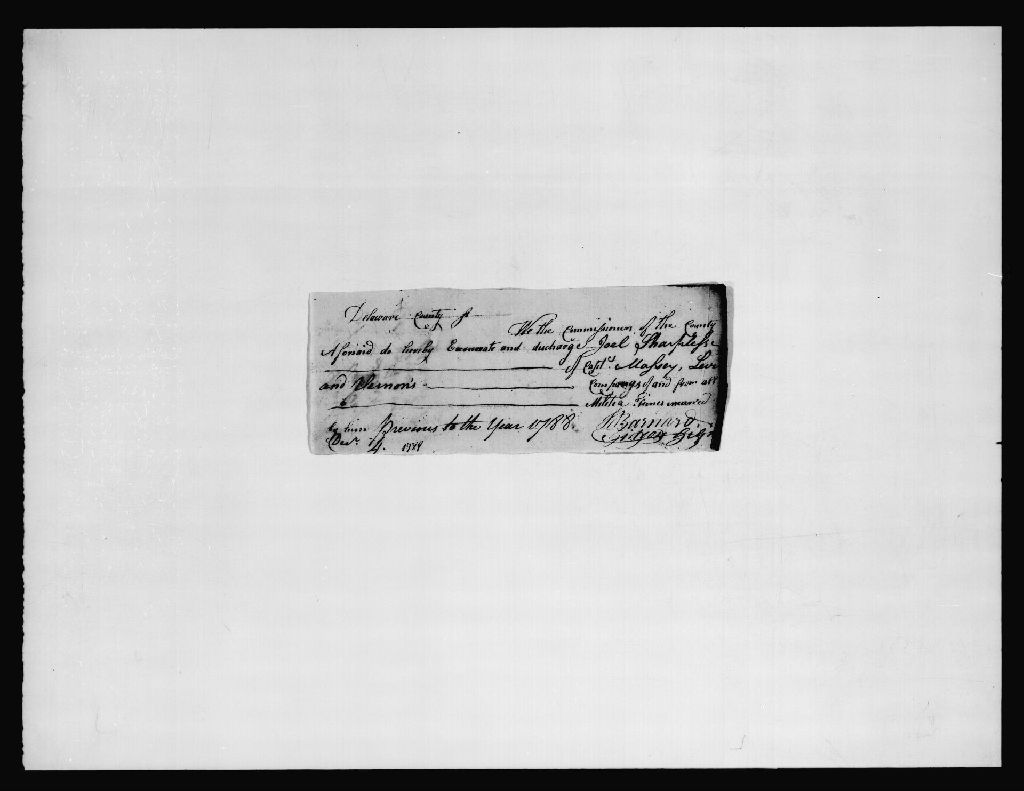 Delaware County ss
We the Commissioners of the County
Aforesaid do hereby Exonerate and discharge Joel Sharpless
of Capt.s Massey, Levi
and Vernon's Companys of and from all
Militia Fines incurred
by him Previous to the Year 1788.
Decr. 4. 1788 R Barnard